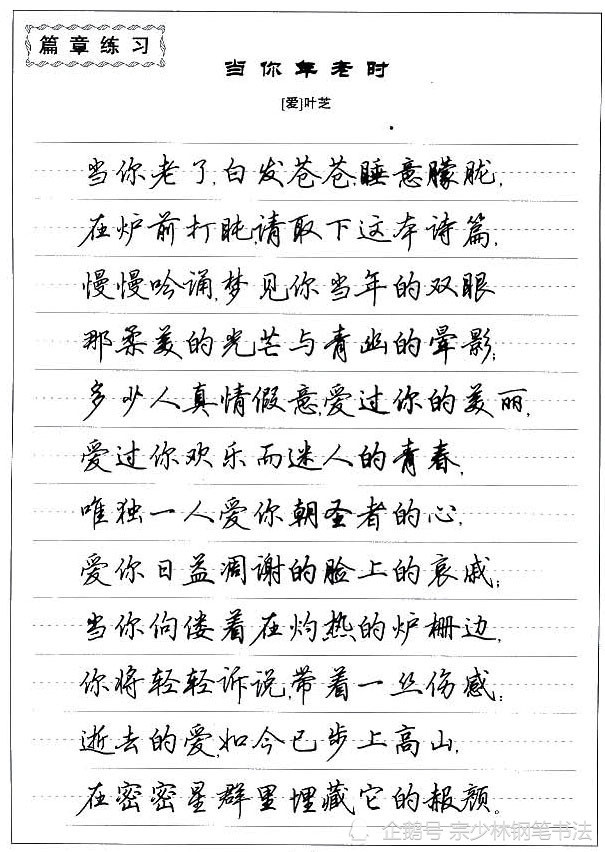 篇章练习
当你年老时
[爱]叶芝
当你老了,白发苍苍,睡意朦胧,
在炉前打盹,请取下这本诗篇,
慢慢吟诵,梦见你当年的双眼
那柔美的光芒与青幽的晕影;
多少人真情假意,爱过你的美丽,
爱过你欢乐而迷人的青春,
唯独一人爱你朝圣者的心,
爱你日益凋谢的脸上的哀戚;
当你佝偻着,在灼热的炉栅边,
你将轻轻诉说,带着一丝伤感:
逝去的爱,如今已步上高山,
在密密星群里埋藏它的赧颜。
企鹅号 宗少林钢笔书法